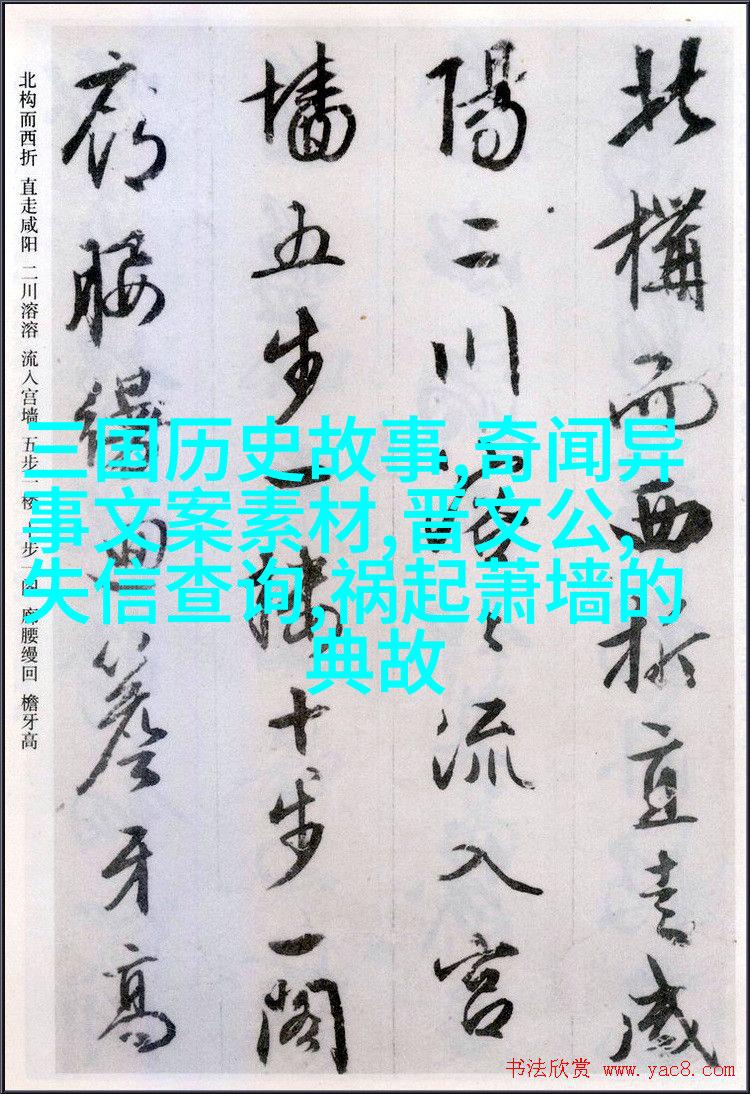 北構而西折直走咸
陽二川溶々流入宮
墻五步一樓十步一閣
廊腰縵迴簷牙高
北构而西折 直走咸阳 二川溶溶 流入宫墙 五步一楼 十步一阁 廊腰缦回 檐牙高
三国历史故事,奇闻异
事文案素材,晋文公,
失信查询,祸起萧墙的
典故
书法欣赏 www.yac8.com